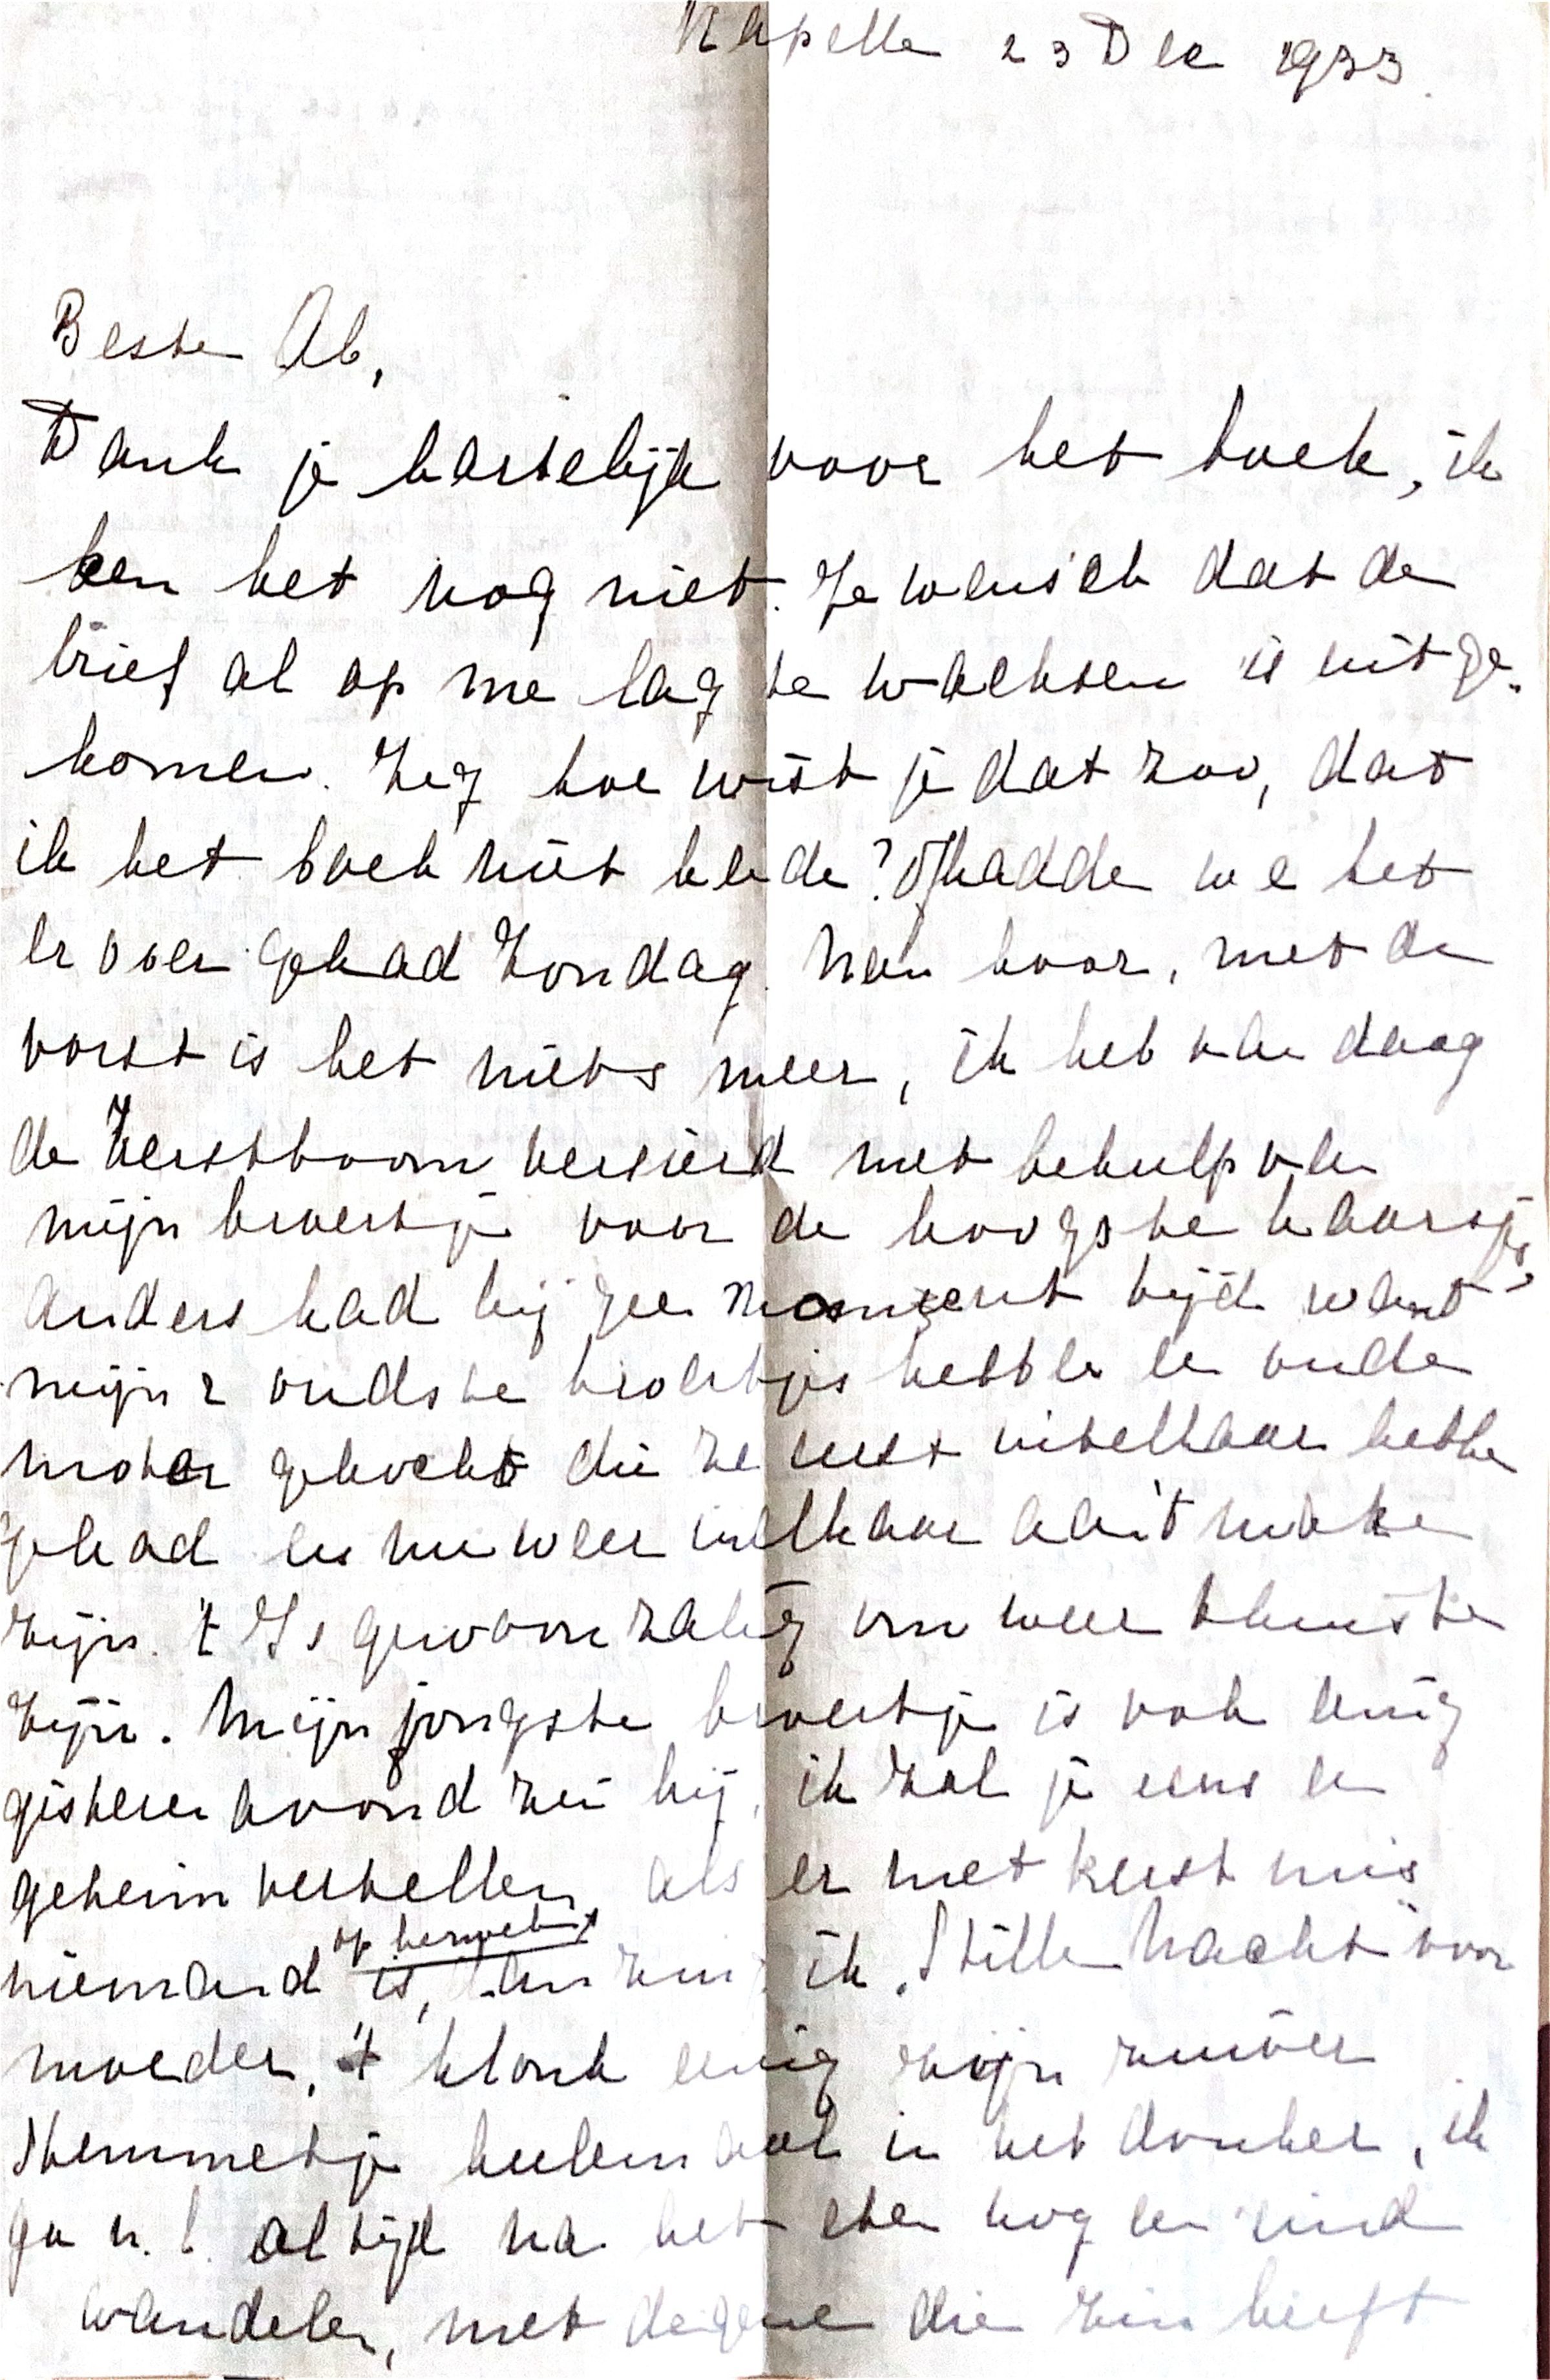 Kapelle 23 Dec 1933.
Beste Ab,
Dank je hartelijk voor het boek, ik
ken het nog niet. Je wensch dat de
brief al op me lag te wachten is uitge-
komen. Zeg hoe wist je dat zoo, dat
ik het boek niet kende? Of hadde we het
er over gehad Zondag. Nee hoor, met de
vorst is het niets meer, ik heb van daag
de Kerstboom versierd met behulp van
mijn broertje voor de hoogste kaarsjes,
anders had hij gee moment tijd want
mijn 2 oudste broertjes hebbe en oude
motor gekocht die ze eerst uitelkaar hebbe
gehad en nu weer inelkaar aan't make
zijn. 't Is gewoon zalig om weer thuis te
zijn. Mijn jongste broertje is ook eenig
gisteren avond zei hij, ik zal je eens en
geheim vertellen, als er met kerstmis
niemand op bezoek is, dan zing ik "Stille Nacht" voor
moeder, 't klonk eenig zijn zuiver
stemmetje heelemaal in het donker, ik
ga n.l. altijd na het eten nog en eind
wandelen, met degene die zin heeft